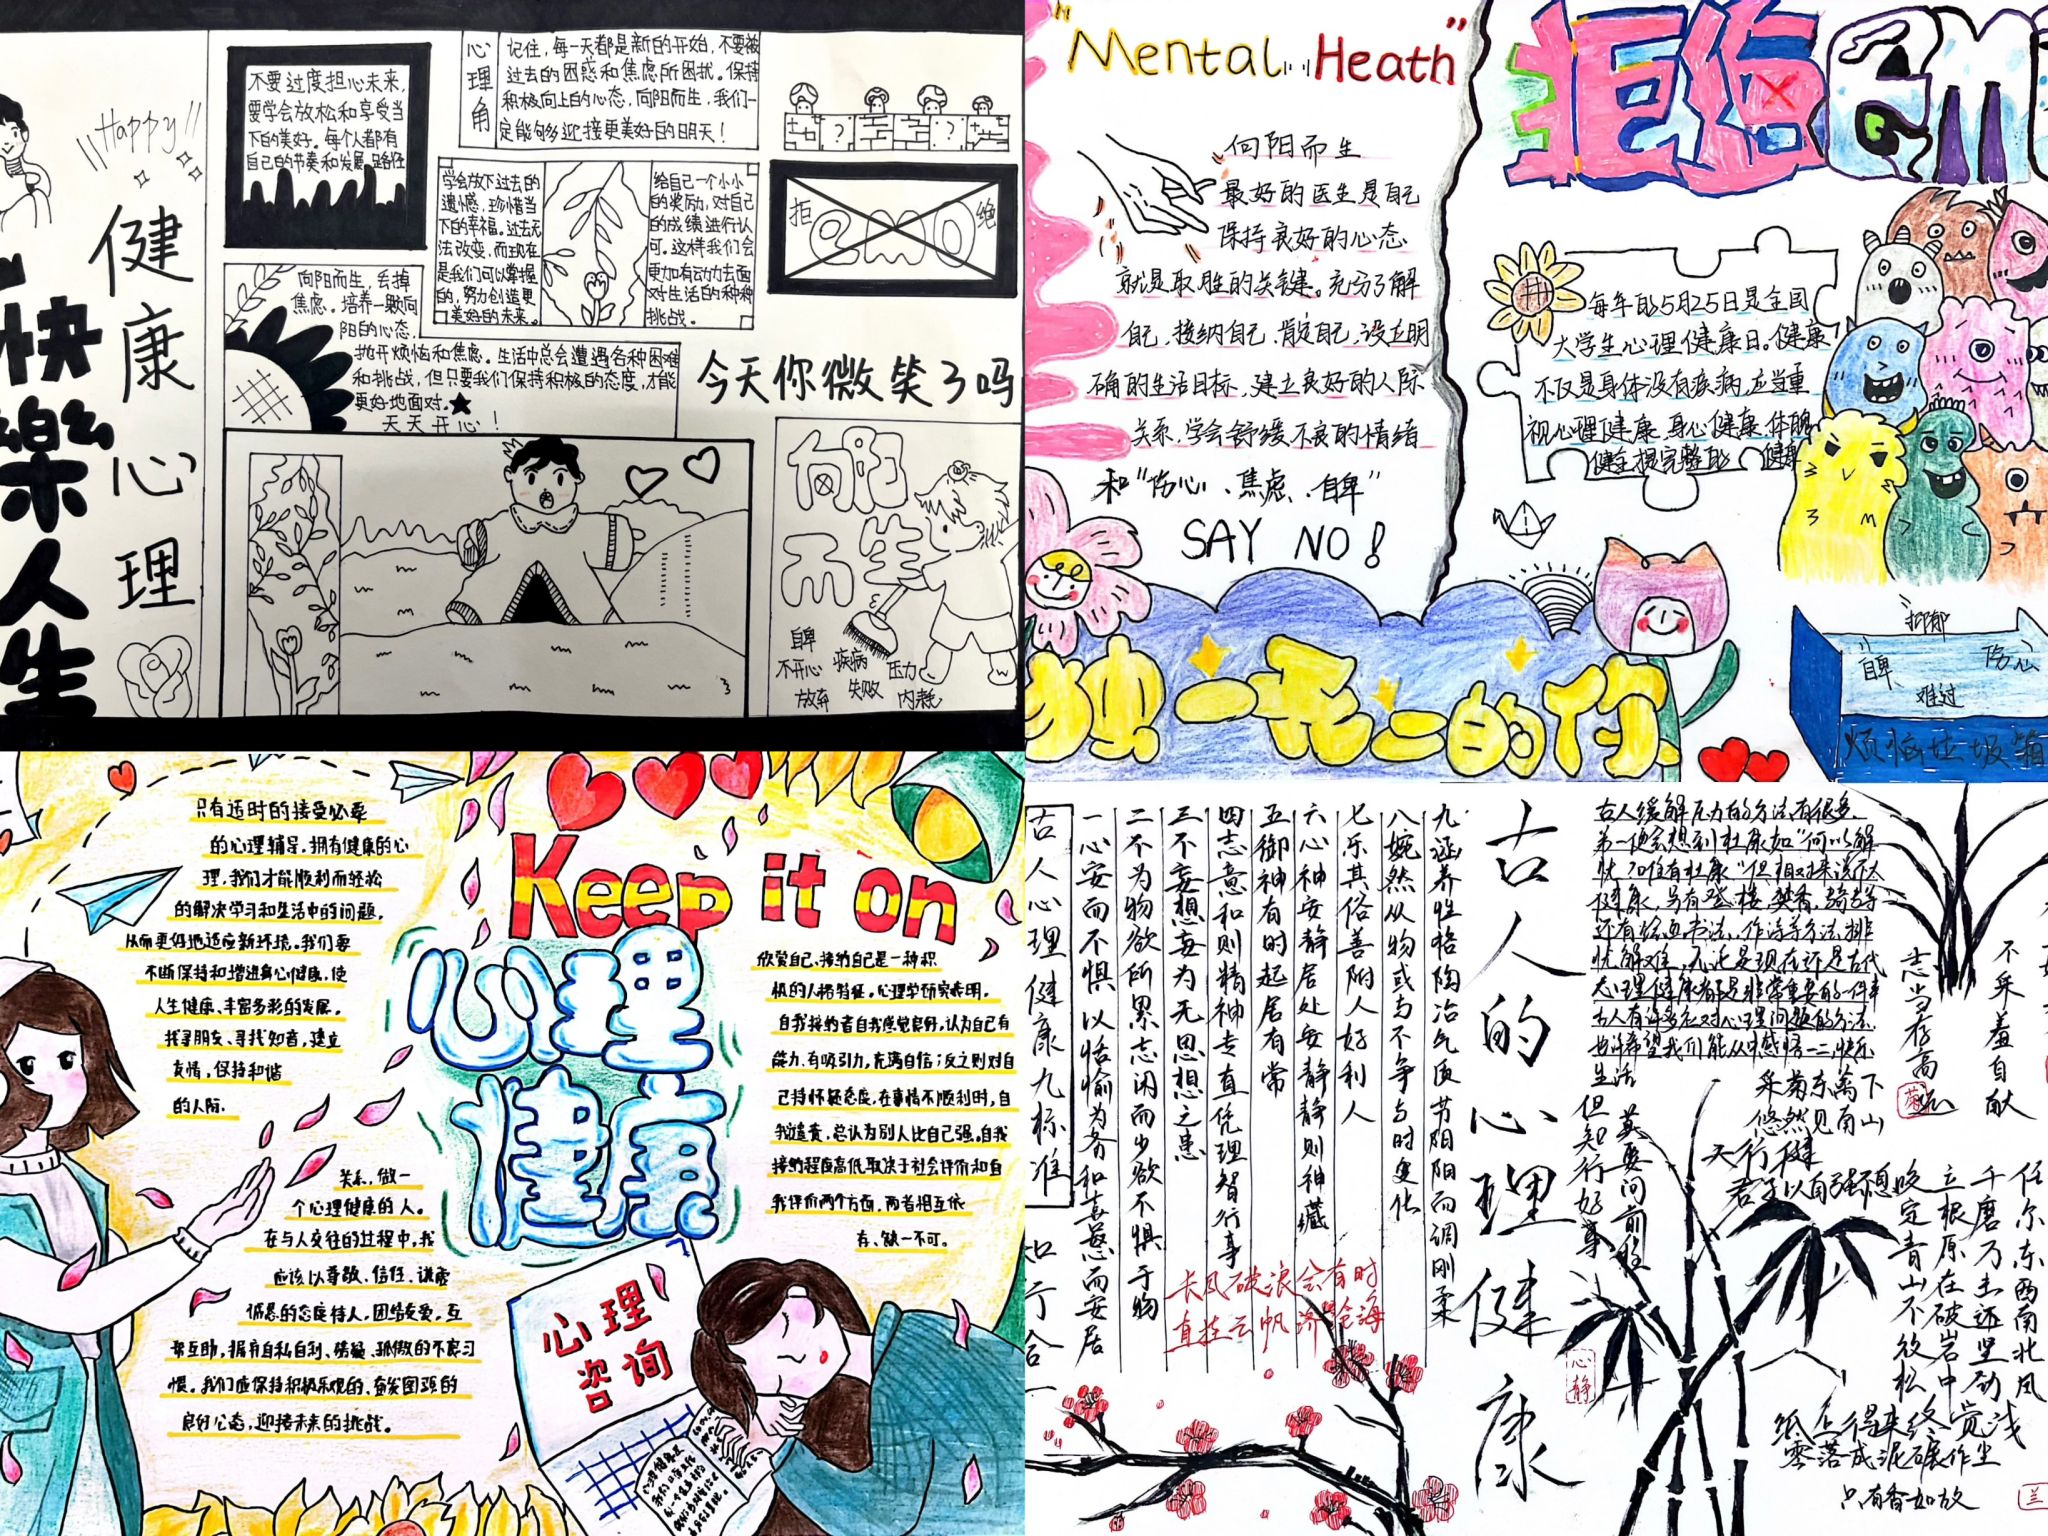 Happy
健康心理
快樂人生
不要过度担心未来,
要学会放松和享受当
下的美好。每个人都有
自己的节奏和发展路径
心理角
记住,每一天都是新的开始,不要被
过去的困惑和焦虑所困扰。保持
积极向上的心态,向阳而生,我们一
定能够迎接更美好的明天!
学会放下过去的
遗憾,珍惜当
下的幸福。过去无
法改变,而现在
是我们可以掌握
的,努力创造更
美好的未来。
给自己一个小小
的奖励,对自己
的成绩进行认
可。这样我们会
更加有动力去面
对生活的种种
挑战。
拒
emo
绝
向阳而生,丢掉
焦虑。培养一颗向
阳的心态,
抛开烦恼和焦虑。生活中总会遭遇各种困难
和挑战,但只要我们保持积极的态度,才能
更好地面对。★
天天开心!
今天你微笑了吗
向阳
而生
自卑
不开心
疾病
压力
放弃
失败
内耗
"Mental Heath"
向阳而生
最好的医生是自己
保持良好的心态
就是取胜的关键。充分了解
自己,接纳自己,肯定自己,设立明
确的生活目标,建立良好的人际
关系,学会舒缓不良的情绪
和"伤心、焦虑、自卑"
SAY NO!
独一无二的你
每年的5月25日是全国
大学生心理健康日。健康
不仅是身体没有疾病,应当重
视心理健康,身心健康,体魄
抑郁
自卑
伤心
难过
烦恼垃圾箱
只有适时的接受必要
的心理辅导,拥有健康的心
理,我们才能顺利而轻松
的解决学习和生活中的问题,
从而更好地适应新环境。我们要
不断保持和增进身心健康,使
人生健康、丰富多彩的发展。
找寻朋友、寻找知音,建立
友情,保持和谐
的人际
关系,做一
个心理健康的人。
在与人交往的过程中,我
应该以尊敬、信任、谦虚
诚恳的态度待人,团结友爱,互
帮互助,摒弃自私自利、猜疑、孤傲的不良习
惯。我们应保持积极乐观的、奋发图强的
良好心态,迎接未来的挑战。
Keep it on
心理
健康
欣赏自己、接纳自己是一种积
极的人格特征。心理学研究表明,
自我接纳者自我感觉良好,认为自己有
能力、有吸引力,充满自信;反之则对自
己持怀疑态度,在事情不顺利时,自
我谴责,总认为别人比自己强。自我
接纳程度高低取决于社会评价和自
我评价两个方面,两者相互依
存、缺一不可。
心理
咨询
古人心理健康九标准
一心安而不惧以恬愉为务和喜怒而安居
二不为物欲所累志闲而少欲不惧于物
三不妄想妄为无思想之患
四志意和则精神专直凭理智行事
五御神有时起居有常
六心神安静居处安静静则神藏
七乐其俗善附人好利人
八婉然从物或与不争与时变化
九涵养性格陶冶气质节阴阳而调刚柔
长风破浪会有时
直挂云帆济沧海
古人的心理健康
古人缓解压力的方法有很多,
还有绘画书法、作诗等方法排
忧解难,无论是现在还是古代
心理健康都是非常重要的一件事
古人有许多应对心理问题的方法,
也许希望我们能从中感悟一二,快乐
生活
但知行好事
莫要问前程
采菊东篱下
悠然见南山
天行健
君子以自强不息
志当存高远
不采羞自献
任尔东西南北风
千磨万击还坚劲
立根原在破岩中
咬定青山不放松
纸上得来终觉浅
零落成泥碾作尘
只有香如故
心静
菊
兰